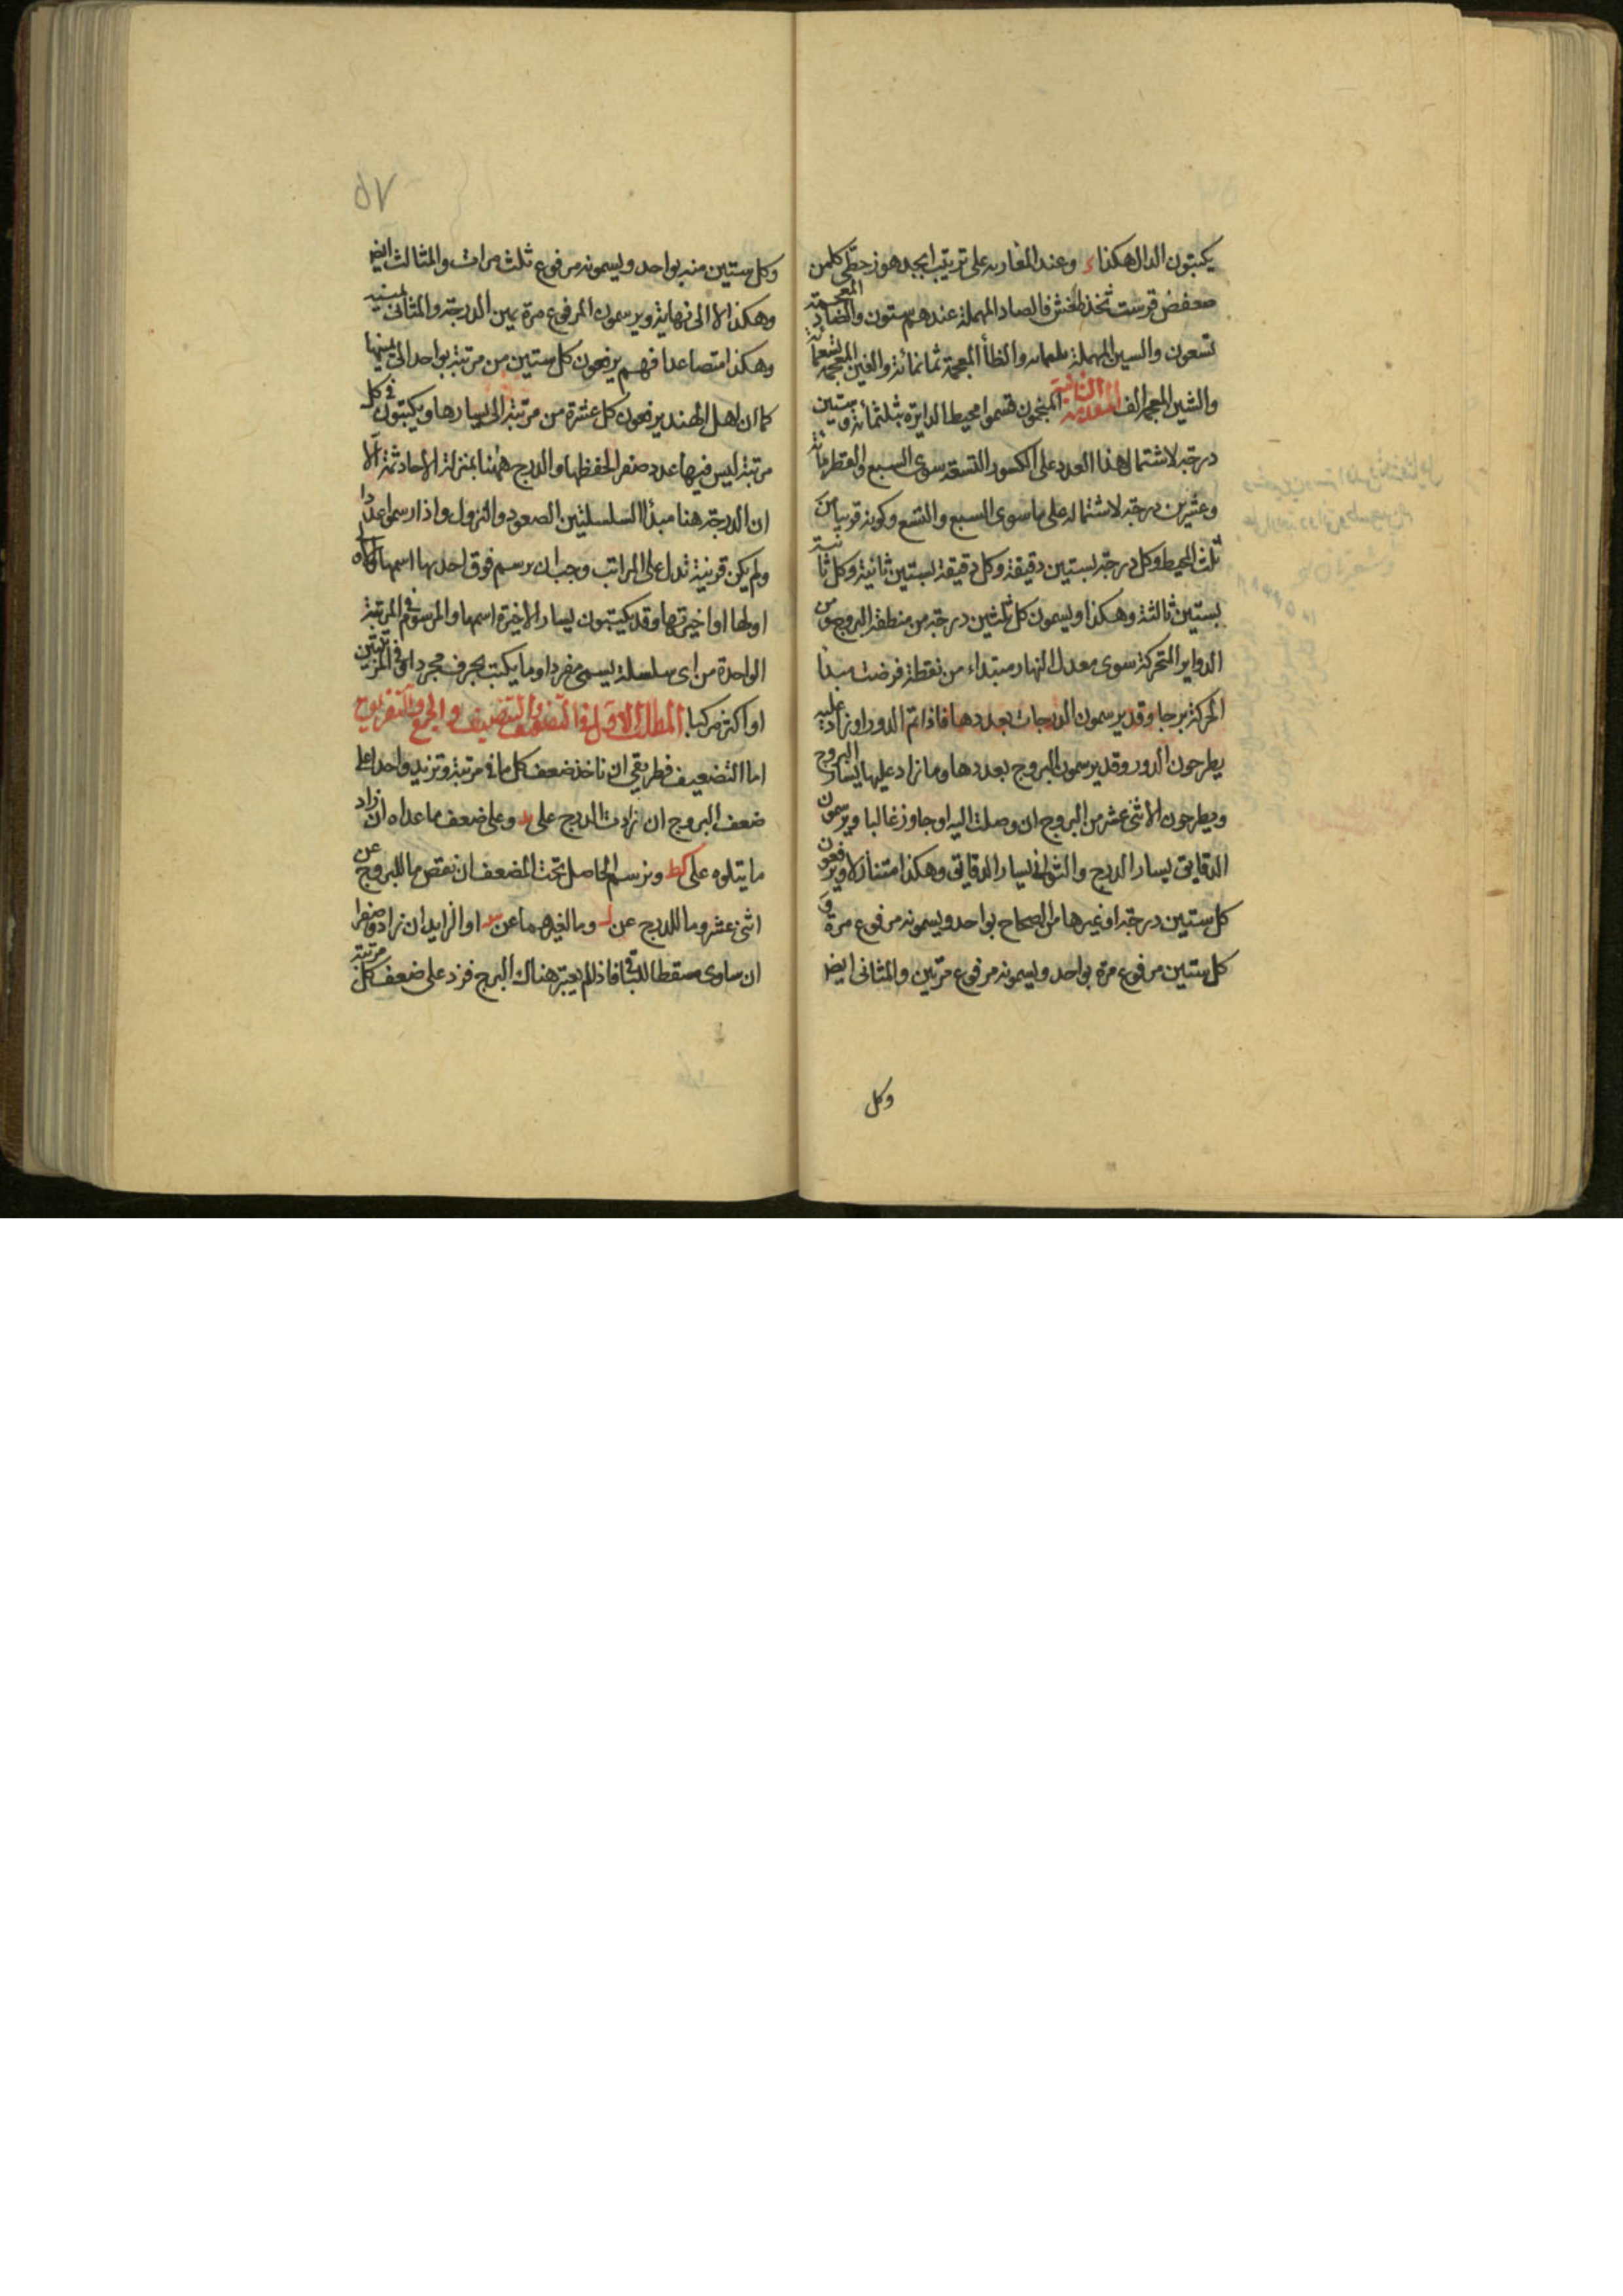 يكتبون الدال هكذا ء وعند المغاربه على ترتيب ابجد هوز حطي كلمن
صعفض قرست ثخذ ظغش فالصاد المهملة عندهم ستون والضاد المعجمة
تسعون والسين المهملة ثلثمائه والظأ المعجمة ثمانمائة والغين المعجمة تسعمائة
والشين المعجمة الف المقدمه الثانية المنجمون قسموا محيط الدايرة بثلثمائة وستين
درجة لاشتمال هذا العدد على الكسور التسعة سوى السبع والقطر مائة
وعشرين درجة لاشتماله على ما سوى السبع والتسع وكونه قريبا من
ثلث المحيط وكل درجة بستين دقيقة وكل دقيقة بستين ثانية وكل ثانية
بستين ثالثة وهكذا ويسمون كل ثلثين درجة من منطقة البروج من
الدواير المتحركة سوى معدل النهار مبتداء من نقطة فرضت مبدأ
الحركة برجا وقد يرسمون الدرجات بعددها فاذا تم الدور او زاد عليه
يطرحون الدور وقد يرسمون البروج بعددها وما زاد عليها يسار البروج
ويطرحون الاثنى عشر من البروج ان وصلت اليه او جاوز غالبا ويرسمون
الدقايق يسار الدرج والثواني يسار الدقايق وهكذا متنازلا ويرفعون
كل ستين درجة او غيرها من الصحاح بواحد ويسمونه مرفوع مرة و
كل ستين مرفوع مرة بواحد ويسمونه مرفوع مرتين والمثانى ايضا
وكل
٥٧
وكل ستين منه بواحد ويسمونه مرفوع ثلث مرات والمثالث ايضا
وهكذا لا الى نهاية ويرسمون المرفوع مرة يمين الدرجة والمثانى يمينه
وهكذا متصاعدا فهم يرفعون كل ستين من مرتبة بواحد الى يمينها
كما ان اهل الهند يرفعون كل عشرة من مرتبة الى يسارها ويكتبون في كل
مرتبة ليس فيها عدد صفرا لحفظها والدرج ههنا بمنزلة الاحاد ثمة الا
ان الدرجة هنا مبدأ السلسلتين الصعود والنزول واذا رسموا عددا
ولم يكن قرينة تدل على المراتب وجب ان يرسم فوق احديها اسمها والاولى
اولها او اخيرتها وقد يكتبون يسار الاخيرة اسمها والمرسوم في المرتبة
الواحدة من اى سلسلة يسمى مفردا وما يكتب بحرف مجردا وفي المرتبتين
او اكثر مركبا المطلب الاول في التضعيف والتنصيف والجمع والتفريق
اما التضعيف فطريقه ان تاخذ ضعف كل ما في مرتبة وتزيد واحدا على
ضعف البروج ان زادت الدرج على يد وعلى ضعف ما عداه ان زاد
ما يتلوه على كط وترسم الحاصل تحت المضعف ان نقص ما للبروج عن
اثنى عشر وما للدرج عن ل وما لغيرهما عن س او الزايد ان زاد وصفرا
ان ساوى مسقطا للباقى فاذا لم يعتبر هناك البرج فزد على ضعف كل مرتبة